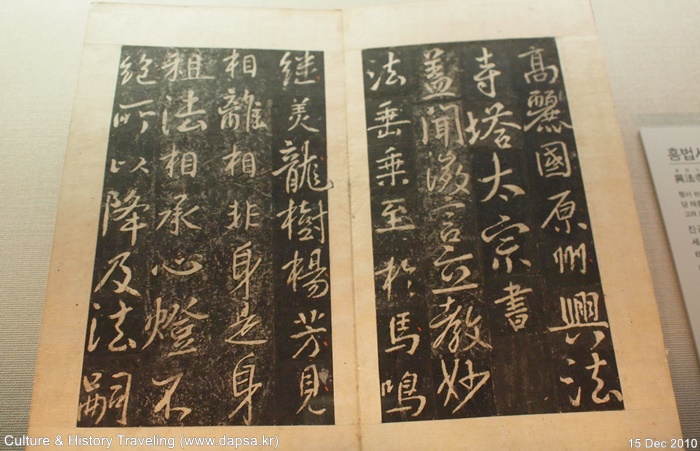 高麗國原州興法
寺塔太宗書
蓋聞微言立教妙
法垂乘至扵馬鳴
継美龍樹楊芳見
相離相非身是身
粗法相承心燈不
絶所以降及法嗣
홍법
興法
Culture & History Traveling (www.dapsa.kr)
15 Dec 2010